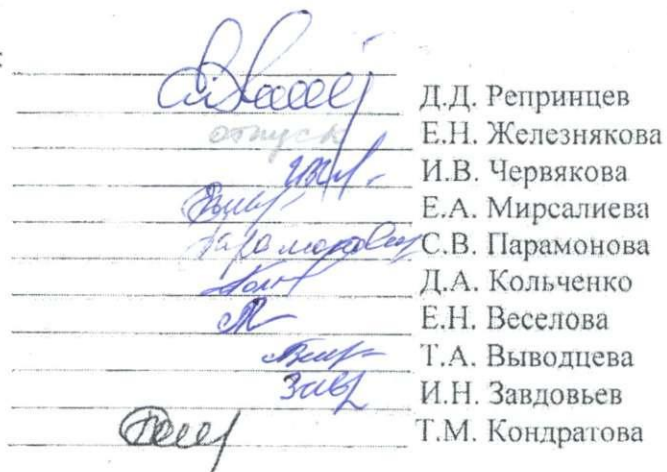 Д.Д. Репринцев
отпуск Е.Н. Железнякова
И.В. Червякова
Е.А. Мирсалиева
Парамонова С.В. Парамонова
Д.А. Кольченко
Е.Н. Веселова
Т.А. Выводцева
И.Н. Завдовьев
Т.М. Кондратова